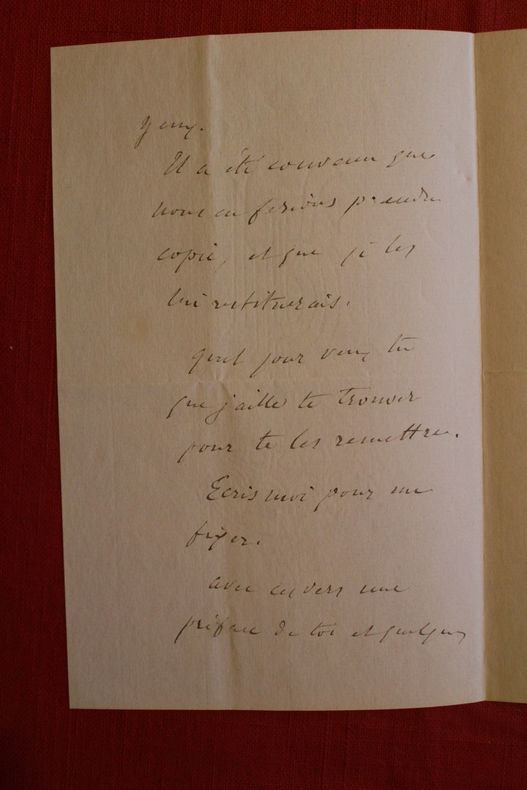 yeux.
Il a été convenu que
nous en ferions prendre
copie, et que je les
lui restituerais.
quel jour veux tu
que j'aille te trouver
pour te les remettre.
Ecris moi pour me
fixer.
avec ces vers une
préface de toi et quelques